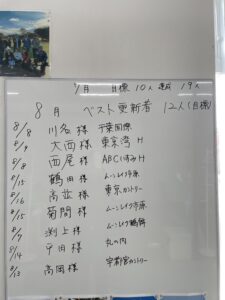 7月 目標 10人 達成 19人
8月 ベスト更新者 12人(目標)
8/8 川名様 千葉国際
8/9 大西様 東京湾H
8/8 西尾様 ABCいすみH
8/15 鶴田様 ムーンレイク市原
8/16 高並様 東京カントリー
8/15 菊間様 ムーンレイク市原
8/7 渕上様 ムーンレイク鶴舞
8/14 平田様 丸の内
8/13 高岡様 宇都宮カントリー